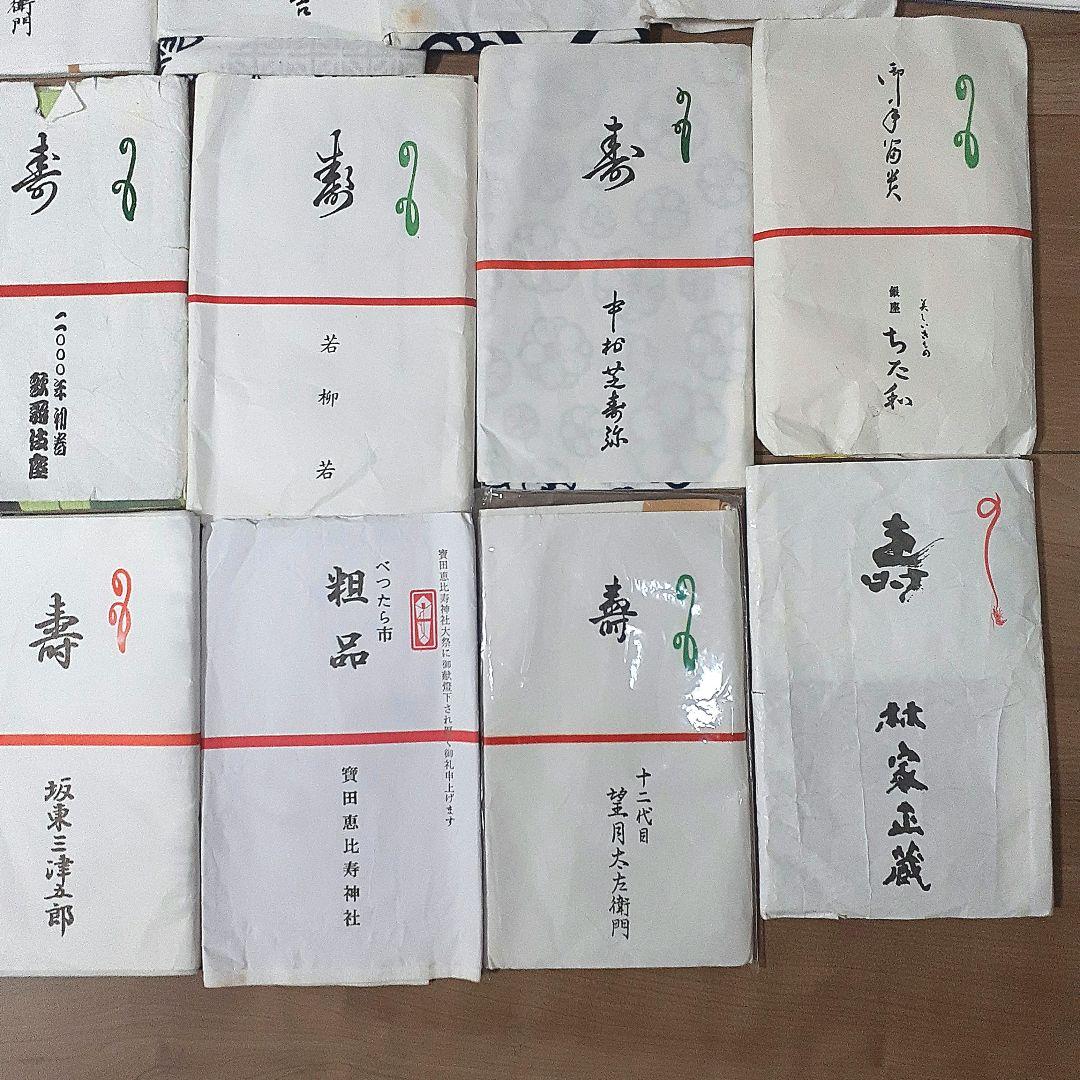 衛門
寿
二〇〇〇年初春
歌舞伎座
壽
若柳若
寿
中松芝寿弥
御年賀
美しいきもの
銀座
ちた和
寿
坂東三津五郎
寶田恵比寿神社大祭に御献燈下され厚く御礼申上げます
べったら市
粗品
寶田恵比寿神社
壽
十二代目
望月太左衛門
寿
林家正蔵